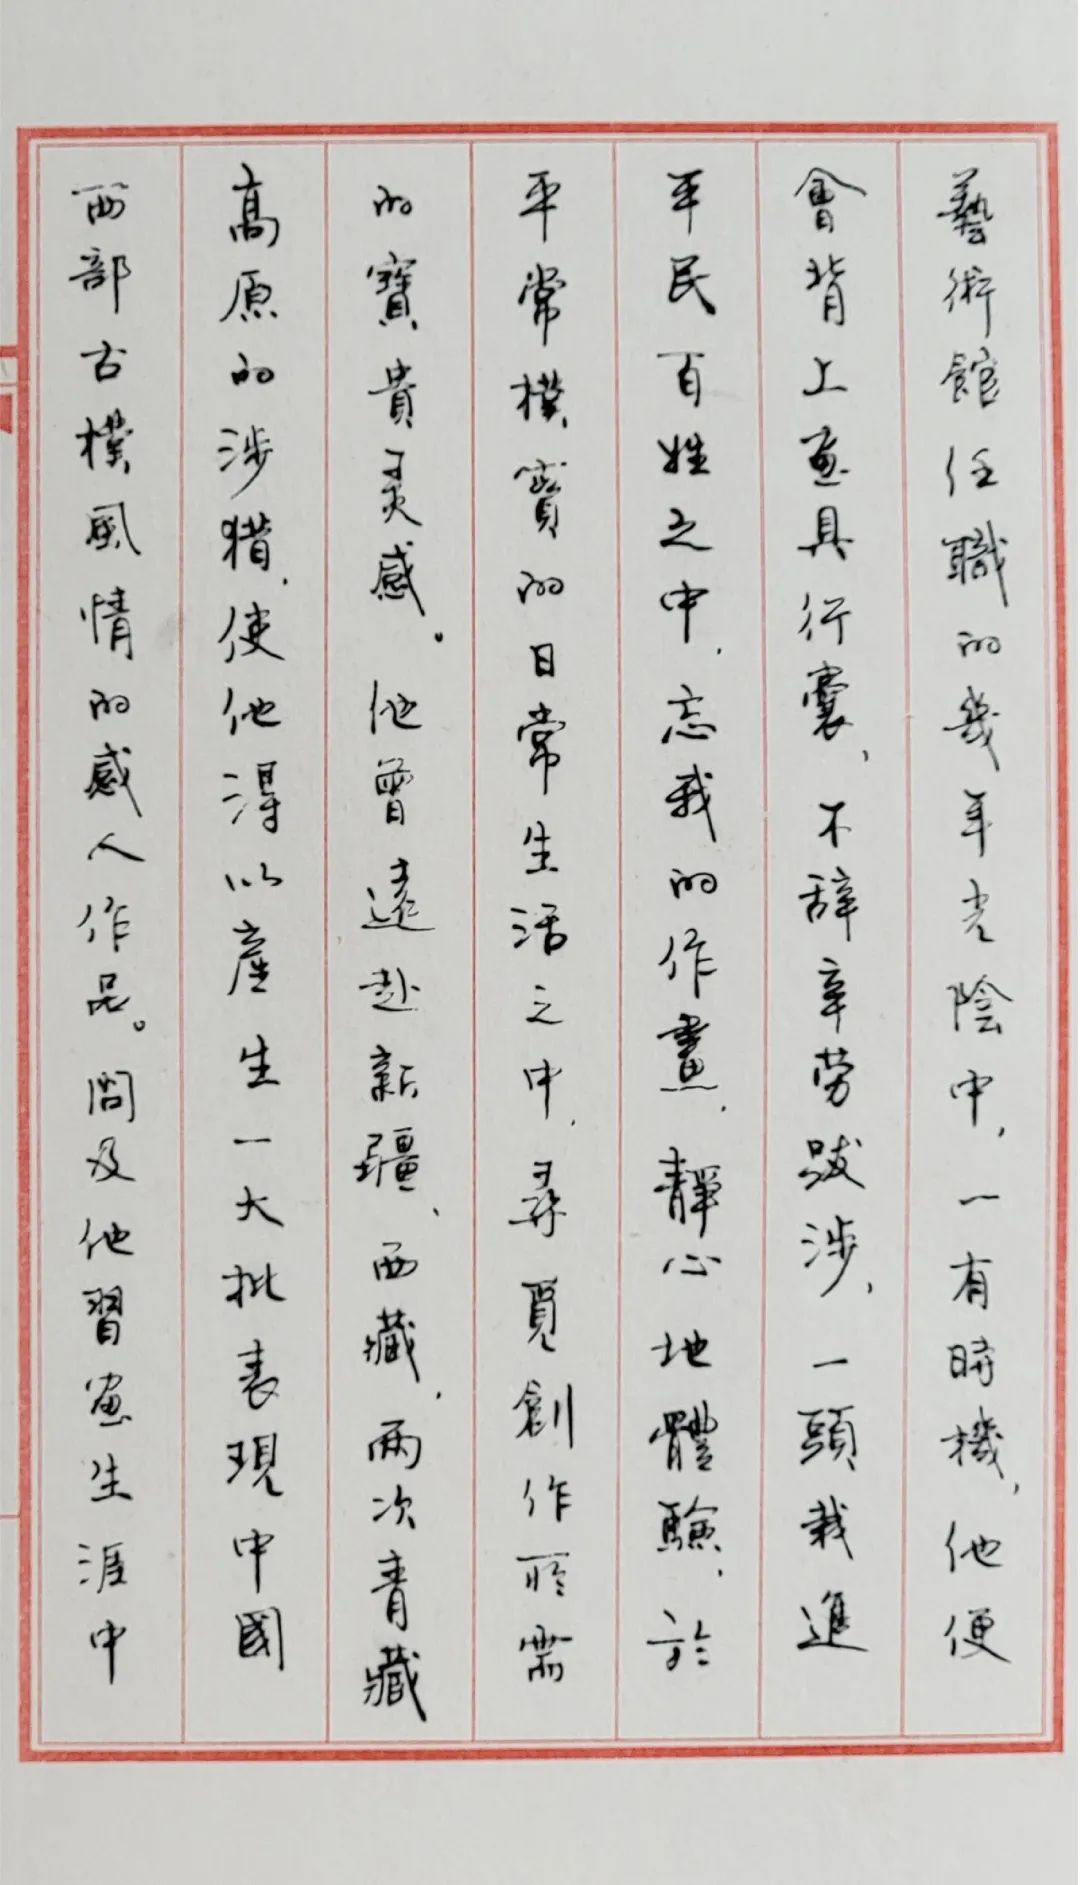 藝術館任職的幾年光陰中，一有時機，他便
會背上畫具行囊，不辭辛勞跋涉，一頭栽進
平民百姓之中，忘我的作畫，靜心地體驗，於
平常樸實的日常生活之中，尋覓創作所需
的寶貴灵感。他曾遠赴新疆、西藏，兩次青藏
高原的涉猎，使他得以產生一大批表現中國
西部古樸風情的感人作品。問及他習畫生涯中